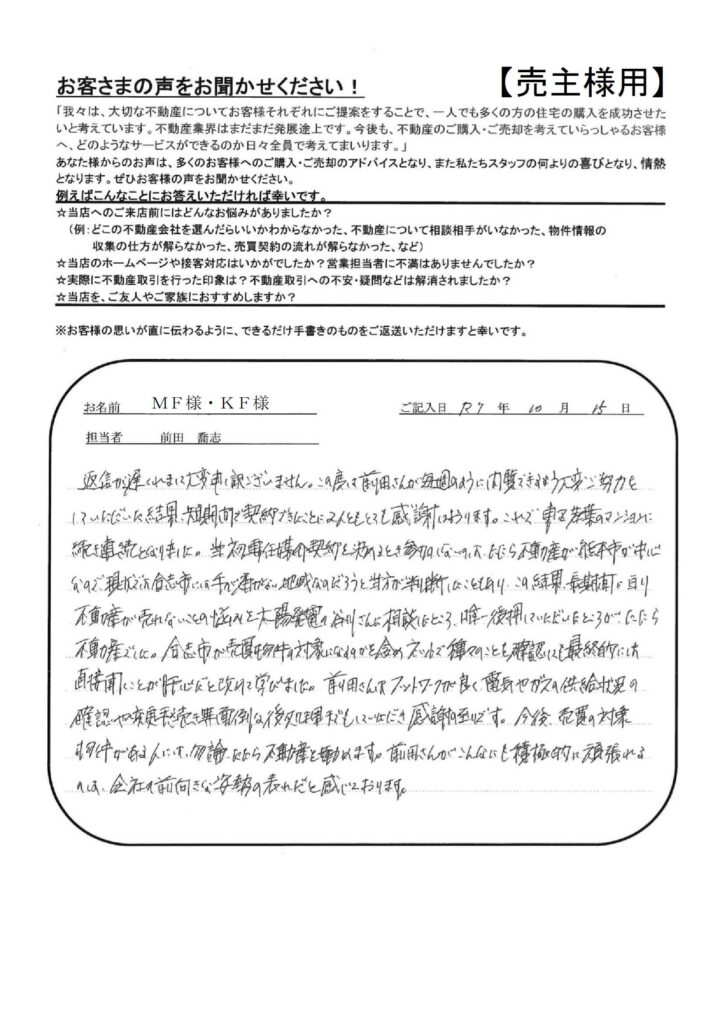 お客さまの声をお聞かせください！
【売主様用】
「我々は、大切な不動産についてお客様それぞれにご提案をすることで、一人でも多くの方の住宅の購入を成功させた
いと考えています。不動産業界はまだまだ発展途上です。今後も、不動産のご購入・ご売却を考えていらっしゃるお客様
へ、どのようなサービスができるのか日々全員で考えてまいります。」
あなた様からのお声は、多くのお客様へのご購入・ご売却のアドバイスとなり、また私たちスタッフの何よりの喜びとなり、情熱
となります。ぜひお客様の声をお聞かせください。
例えばこんなことにお答えいただければ幸いです。
☆当店へのご来店前にはどんなお悩みがありましたか？
（例：どこの不動産会社を選んだらいいかわからなかった、不動産について相談相手がいなかった、物件情報の
収集の仕方が解らなかった、売買契約の流れが解らなかった、など）
☆当店のホームページや接客対応はいかがでしたか？営業担当者に不満はありませんでしたか？
☆実際に不動産取引を行った印象は？不動産取引への不安・疑問などは解消されましたか？
☆当店を、ご友人やご家族におすすめしますか？
※お客様の思いが直に伝わるように、できるだけ手書きのものをご返送いただけますと幸いです。
お名前 ＭＦ様・ＫＦ様
ご記入日 R7 年 10 月 15 日
担当者 前田 喬志
返信が遅くれまして大変申し訳ございません。この度は前田さんが毎週のように内覧できるよう大変ご努力を
していただいた結果、短期間で契約できたことに2人ともとても感謝しております。これで のマンションに
続き となりました。当初専任媒介契約を決めるとき 不動産が熊本市が中心
なので、現状では合志市には手が届かない地域なのだろうと当方が判断したこともあり、この結果、長期間に亘り
不動産が売れないことの悩みを太陽発電の谷川さんに相談したところ、唯一後押していただいたところが、たたら
不動産でした。合志市が売買物件の対象になるのかを含めネットで種々のことを確認しても最終的には
直接聞くことが肝心だと改めて学びました。前田さんはフットワークが良く電気やガスの供給状況の
確認や変更手続き等面倒な後処理までもしていただき感謝の至りです。今後、売買の対象
物件がある人には、勿論、たたら不動産を勧めます。前田さんがこんなにも積極的に頑張れる
のは、会社の前向きな姿勢の表れだと感じております。